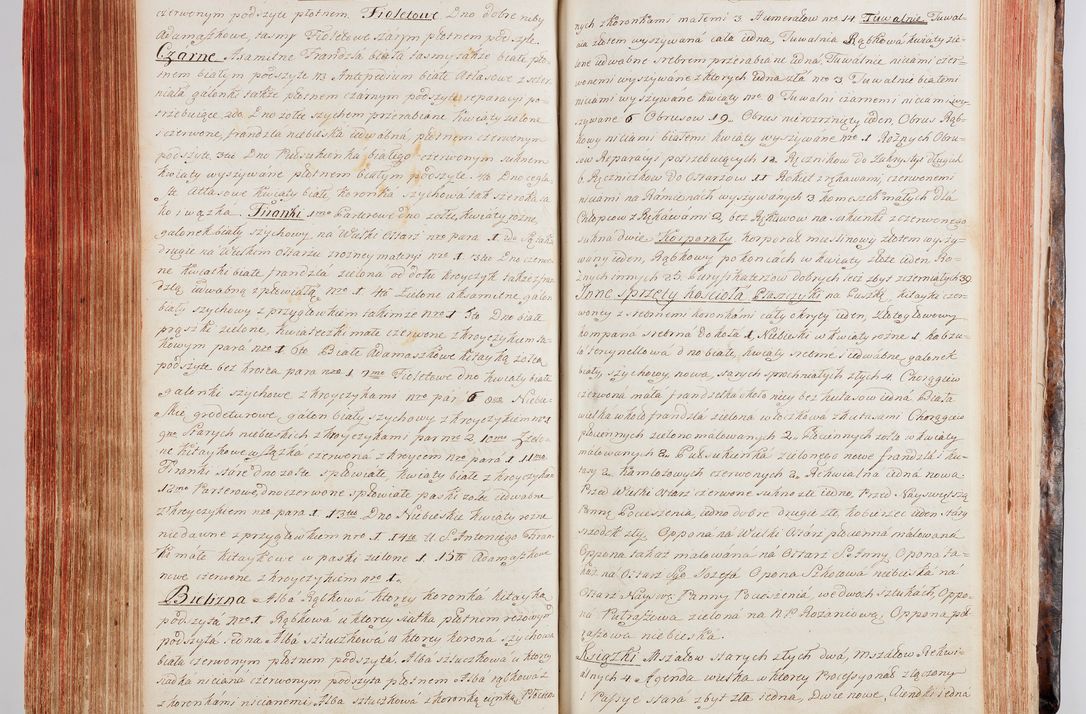 czerwonym podszyte płotnem. Fioletowe Dno dobre ryby
Adamaszkowe, tasmy Fioletowe Szarym płotnem podszyte
Czarne Axamitne Frandzla biała tasmy także białe, pło-
tnem białym podszyte
niała galonki także płotnem czarnym podszyte, reparacyi po-
trzebuiące, 2do Dno zołte szychem przerabiane kwiaty zielone
i czerwone, frandzla niebieska iedwabna płotnem czerwonym
podszyte 3tie Dno białego czerwonym suknem
kwiaty wyszywane płotnem białym podszyte. 4to Dno cegla-
te Atłasowe kwiaty białe koronka szychowa tak szeroka ia-
ko i wązka. Firanki 1mo Parterowe dno zołte, kwiaty rozne,
galonek biały szychowy, na Wielki Ołtarz nro para 1.
drugie na Wielkim Ołtarzu rozney materyi nro 1. 3tio Dno czerwo-
ne kwiatki białe frandzla zielona od dołu kroyczyk także fran-
dzlą iedwabną spłowiałą. nro 1 4to Zielone aksamitne, galon
biały szychowy z przygłowkiem takimze nro 1 5to Dno białe
prążki zielone, kwiateczki małe czerwone z kroyczykiem ta-
kowym para nro 1 6to Białe adamaszkowe kitayką zołtą
podszyte bez kroica para nro 1 7mo Fioletowe dno kwiaty białe
galonki szychowe z kroyczykami nro par 6 8vo Niebie-
skie grodeturowe, galon biały szychowy z kroyczykiem nro 1
9no Starych niebieskich z kroyczykami par nro 2 10mo Zielo-
ne kitaykowe wstążka czerwona z kroycem nro para 1 11mo
Firanki stare dno zołte spłowiałe, kwiaty białe z kroyczykiem
12mo Parterowe dno czerwone spłowiałe paski zołte iedwabne
z kroyczykiem nro para 1 13tio Dno Niebieskie kwiaty rozne
niedawne z przygłowkiem nro 1 14to U S. Antoniego Firan-
ki małe kitaykowe w paski zielone 1. 15to Adamaszkowe
nowe czerwone z kroyczykiem nro 1.
Bielizna Alba Rąbkowa u ktorey koronka kitayką
podszyta nro 1 Rąbkowa u ktorey siatka płotnem rozowym
podszyta iedna Alba Sztuczkowa u ktorey korona szychowa
biała czerwonym płotnem podszyta. Alba sztuczkowa u ktorey
siatka niciana czerwonym podszyta płotnem Alba rąbkowa z
z koronkami nicianemi Alba Sztuczkowa z koronką cienką, Płocien-
nych z koronkami małemi 3 Humerałow nro 14 Tuwalnie Tuwal-
nia złotem wyszywana cała iedna, Tuwalnia Rąbkowa kwiaty zie-
lone iedwabne srebrem przerabiane iedna, Tuwalnie niciami czer-
wonemi wyszywane z ktorych iedna zła nro 3 Tuwalnie białemi
niciami wyszywane kwiaty nro 8 Tuwalni czarnemi niciami wy-
szywane 6 Obrusow 19. Obrus nierozrznięty ieden, Obrus Rąb-
kowy niciami białemi kwiaty wyszywane nro 1 Roznych Obru-
sow Reparacyi potrzebuiących 12 Ręcznikow do Zakrystyi długich
6 Ręcznikow do Ołtarzow 11 z rękawami, czerwonemi
niciami na Ramionach wyszywanych 3 komeszek małych dla
Chłopcow z Rękawami 2, bez Rękawow na sukienki z czerwonego
sukna dwie Korporały. Korporał muslinowy złotem wyszy-
wany ieden, Rąbkowy po koncach w kwiaty złote ieden Ro-
znych innych 25. Puryfikaterzow dobrych też zbyt zeszmatych 39
Inne sprzęty kościoła Płaszczyki na Puszkę, kitayki czer-
woney z srebrnemi koronkami cały okryty ieden, złotogłowowy
kompana srebrna dokoła 1, Niebieski w kwiaty rozne 1
dno białe, kwiaty srebrne i iedwabne galonek
biały szychowy, nowa, starych sprochniałych złych 4. Chorągiew
czerwona mała frandzelka około niey bez kutasow iedna. Biała
wielka wkoło frandzla zielona włoczkowa z kutasami Chorągwie
płociennych zielono malowanych 2. Płociennych zołto w kwiaty
malowanych 2. zielonego nowe frandzle i ku-
tasy 2 kamlotowych czerwonych 2. Rekwialna iedna nowa.
Przed Wielki Ołtarz czerwone sukno złe iedno, Przed Nayswiętszą
Panną Pocieszenia, iedno dobre drugie złe, kobierzec ieden stary
srzodek zły. Oppona na Wielki Ołtarz płocienna malowana
Oppona takaż malowana na Ołtarz S. Anny, Opona ta-
każ na Ołtarz Sgo Jozefa Opona Szkocowa niebieska na
Ołtarz Nayswę: Panny Pocieszenia we dwoch sztukach, Oppo-
na zielona na N.P. Rozancową, Oppona pło-
niebieska.
Książki. Mszałow starych złych dwa, Mszałow Rekwi-
alnych 4. Agenda wielka w ktorey Processyonał złączony
1 Passye stara zbyt zła iedna, Dwie nowe, Agendki iedna